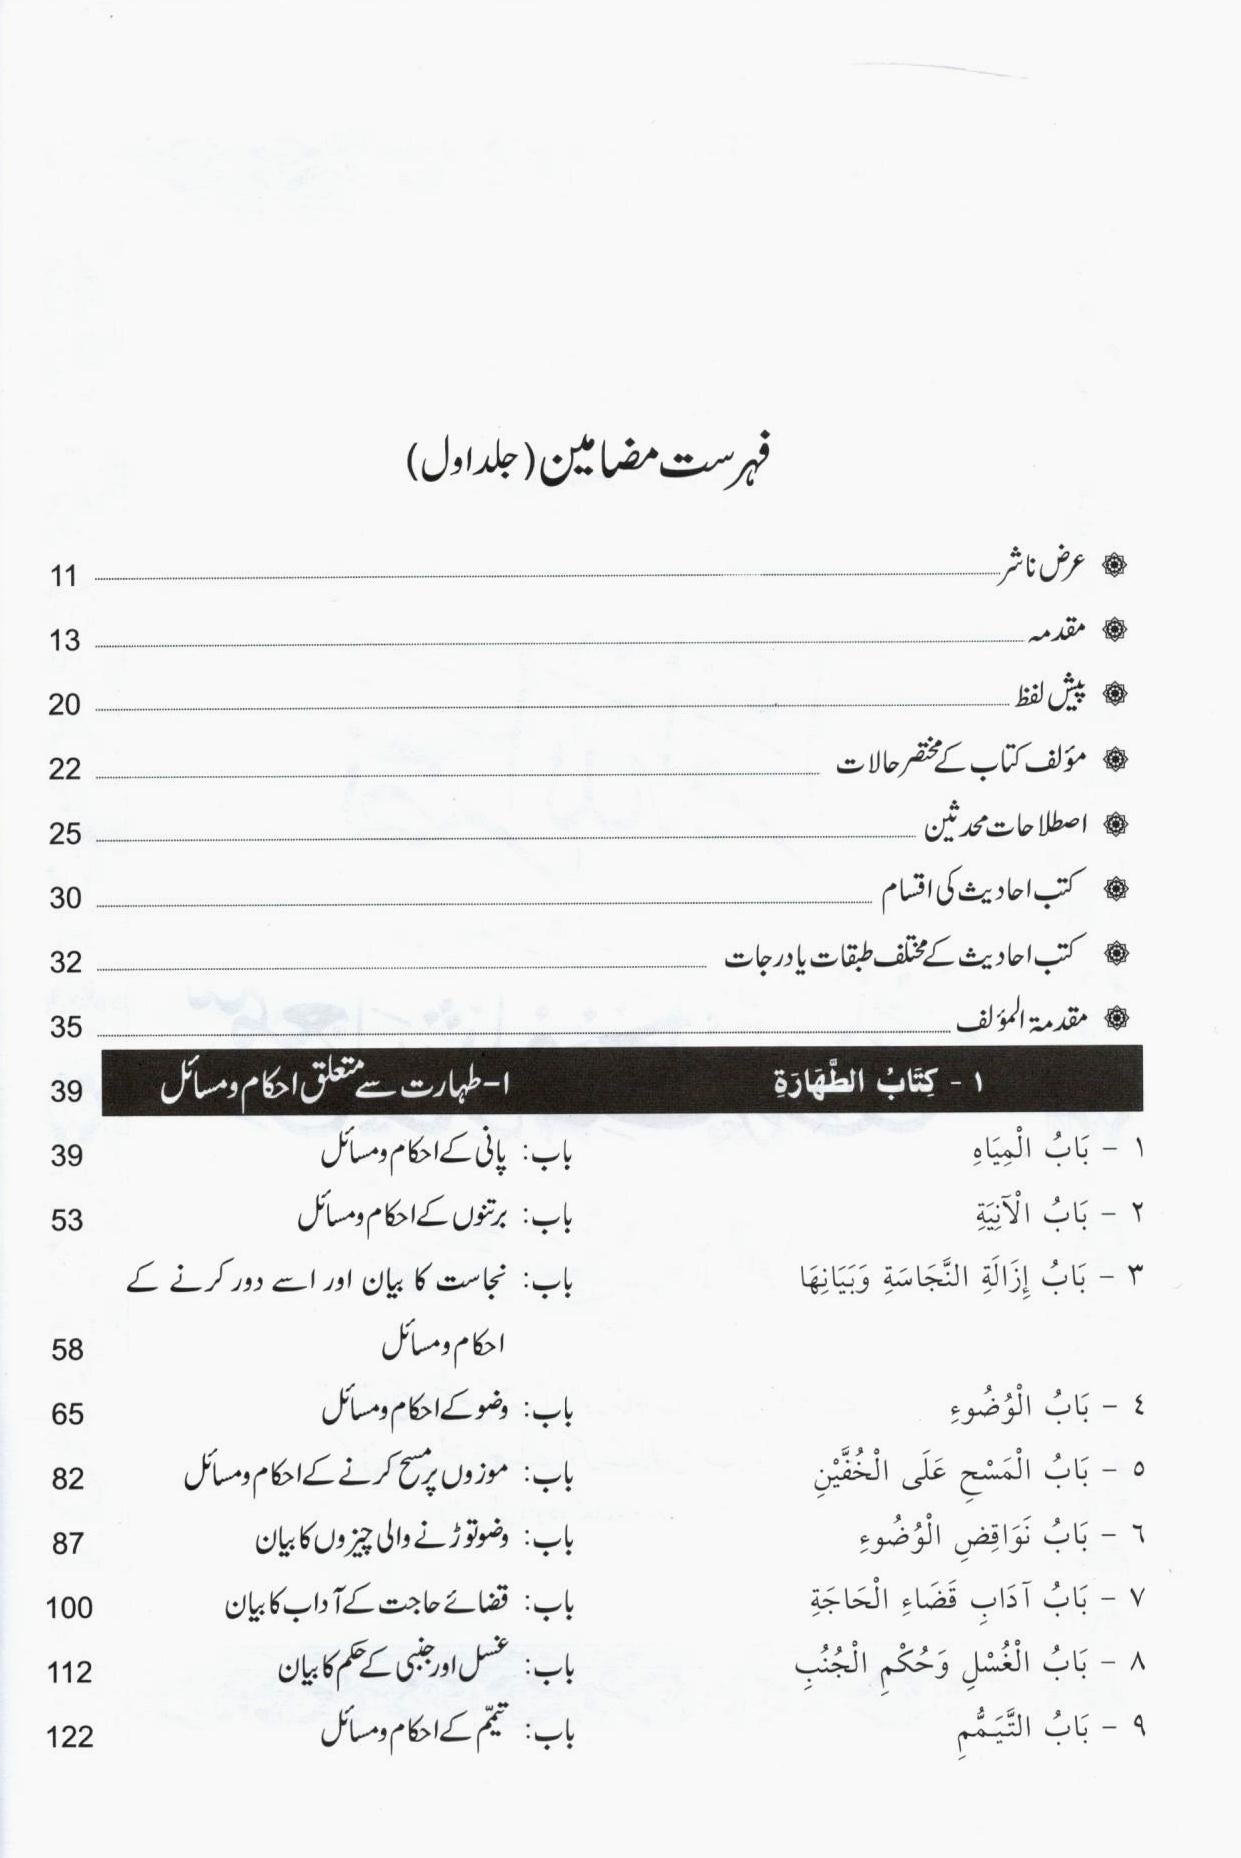 فہرست مضامین (جلد اول)
عرض ناشر 11
مقدمہ 13
پیش لفظ 20
مؤلف کتاب کے مختصر حالات 22
اصطلاحات محدثین 25
کتب احادیث کی اقسام 30
کتب احادیث کے مختلف طبقات یا درجات 32
مقدمۃ المؤلف 35
١ - كِتَابُ الطَّهَارَةِ ۱- طہارت سے متعلق احکام و مسائل 39
١ - بَابُ الْمِيَاهِ باب: پانی کے احکام و مسائل 39
٢ - بَابُ الْآنِيَةِ باب: برتنوں کے احکام و مسائل 53
٣ - بَابُ إِزَالَةِ النَّجَاسَةِ وَبَيَانِهَا باب: نجاست کا بیان اور اسے دور کرنے کے
احکام و مسائل 58
٤ - بَابُ الْوُضُوءِ باب: وضو کے احکام و مسائل 65
٥ - بَابُ الْمَسْحِ عَلَى الْخُفَّيْنِ باب: موزوں پر مسح کرنے کے احکام و مسائل 82
٦ - بَابُ نَوَاقِضِ الْوُضُوءِ باب: وضو توڑنے والی چیزوں کا بیان 87
٧ - بَابُ آدَابِ قَضَاءِ الْحَاجَةِ باب: قضائے حاجت کے آداب کا بیان 100
٨ - بَابُ الْغُسْلِ وَحُكْمِ الْجُنُبِ باب: غسل اور جنبی کے حکم کا بیان 112
٩ - بَابُ التَّيَمُّمِ باب: تیمّم کے احکام و مسائل 122